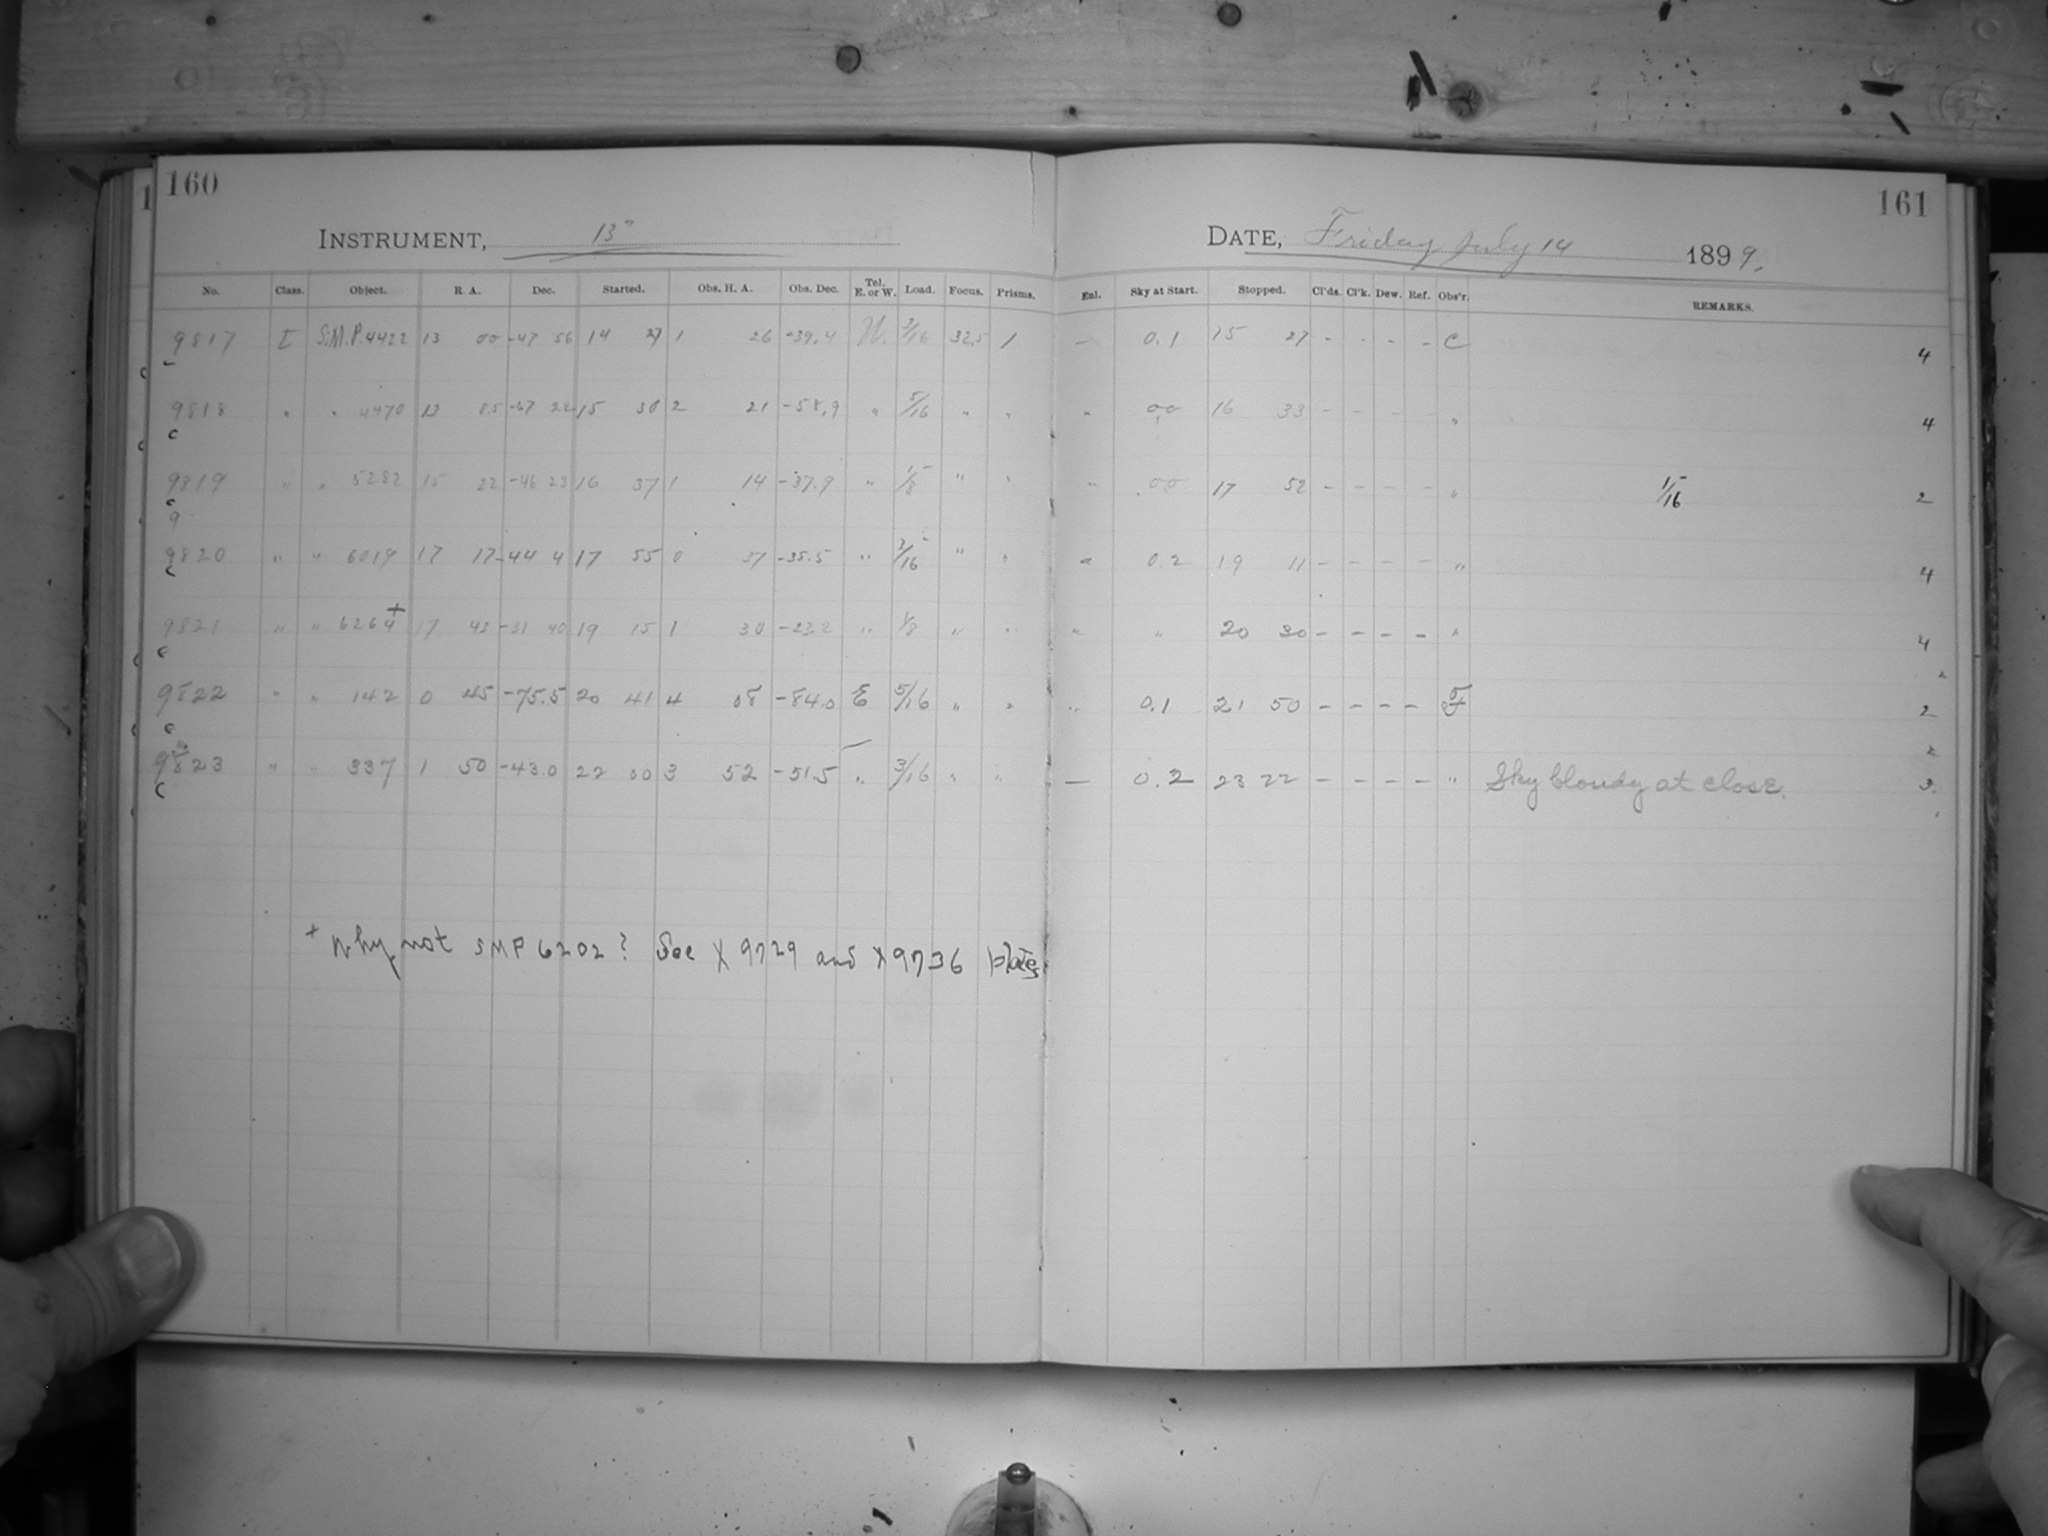 160
161
INSTRUMENT, 13"
DATE, Friday July 14 1899.
No. Class. Object. R. A. Dec. Started. Obs. H. A. Obs. Dec. Tel. E. or W. Load. Focus. Prisms. Enl. Sky at Start. Stopped. Cl'ds. Cl'k. Dew. Ref. Obs'r. REMARKS.
9817 I S.M.P. 4422 13 00 -47 56 14 27 1 26 -39.4 W. 3/16 32.5 1 — 0.1 15 27 - - - - C 4
9818 " " 4470 13 -67 22 15 30 2 21 -58.9 " 5/16 " " " 00 16 33 - - - - " 4
9819 " " 5282 15 22 -46 23 16 37 1 14 -37.9 " 1/8 " " " 00 17 52 - - - - " 1/16 2
9820 " " 6019 17 17 -44 4 17 55 0 37 -35.5 " 3/16 " " " 0.2 19 11 - - - - " 4
9821 " " 6264+ 17 48 -31 40 19 15 1 30 -23.2 " 1/8 " " " " 20 30 - - - - " 4
9822 " " 142 0 45 -75.5 20 41 4 08 -84.0 E 5/16 " " " 0.1 21 50 - - - - F 2
9823 " " 337 1 50 -43.0 22 00 3 52 -51.5 " 3/16 " " — 0.2 23 22 - - - - " Sky cloudy at close. 3.
+ Why not SMP 6202? See X 9729 and X 9736 plates.